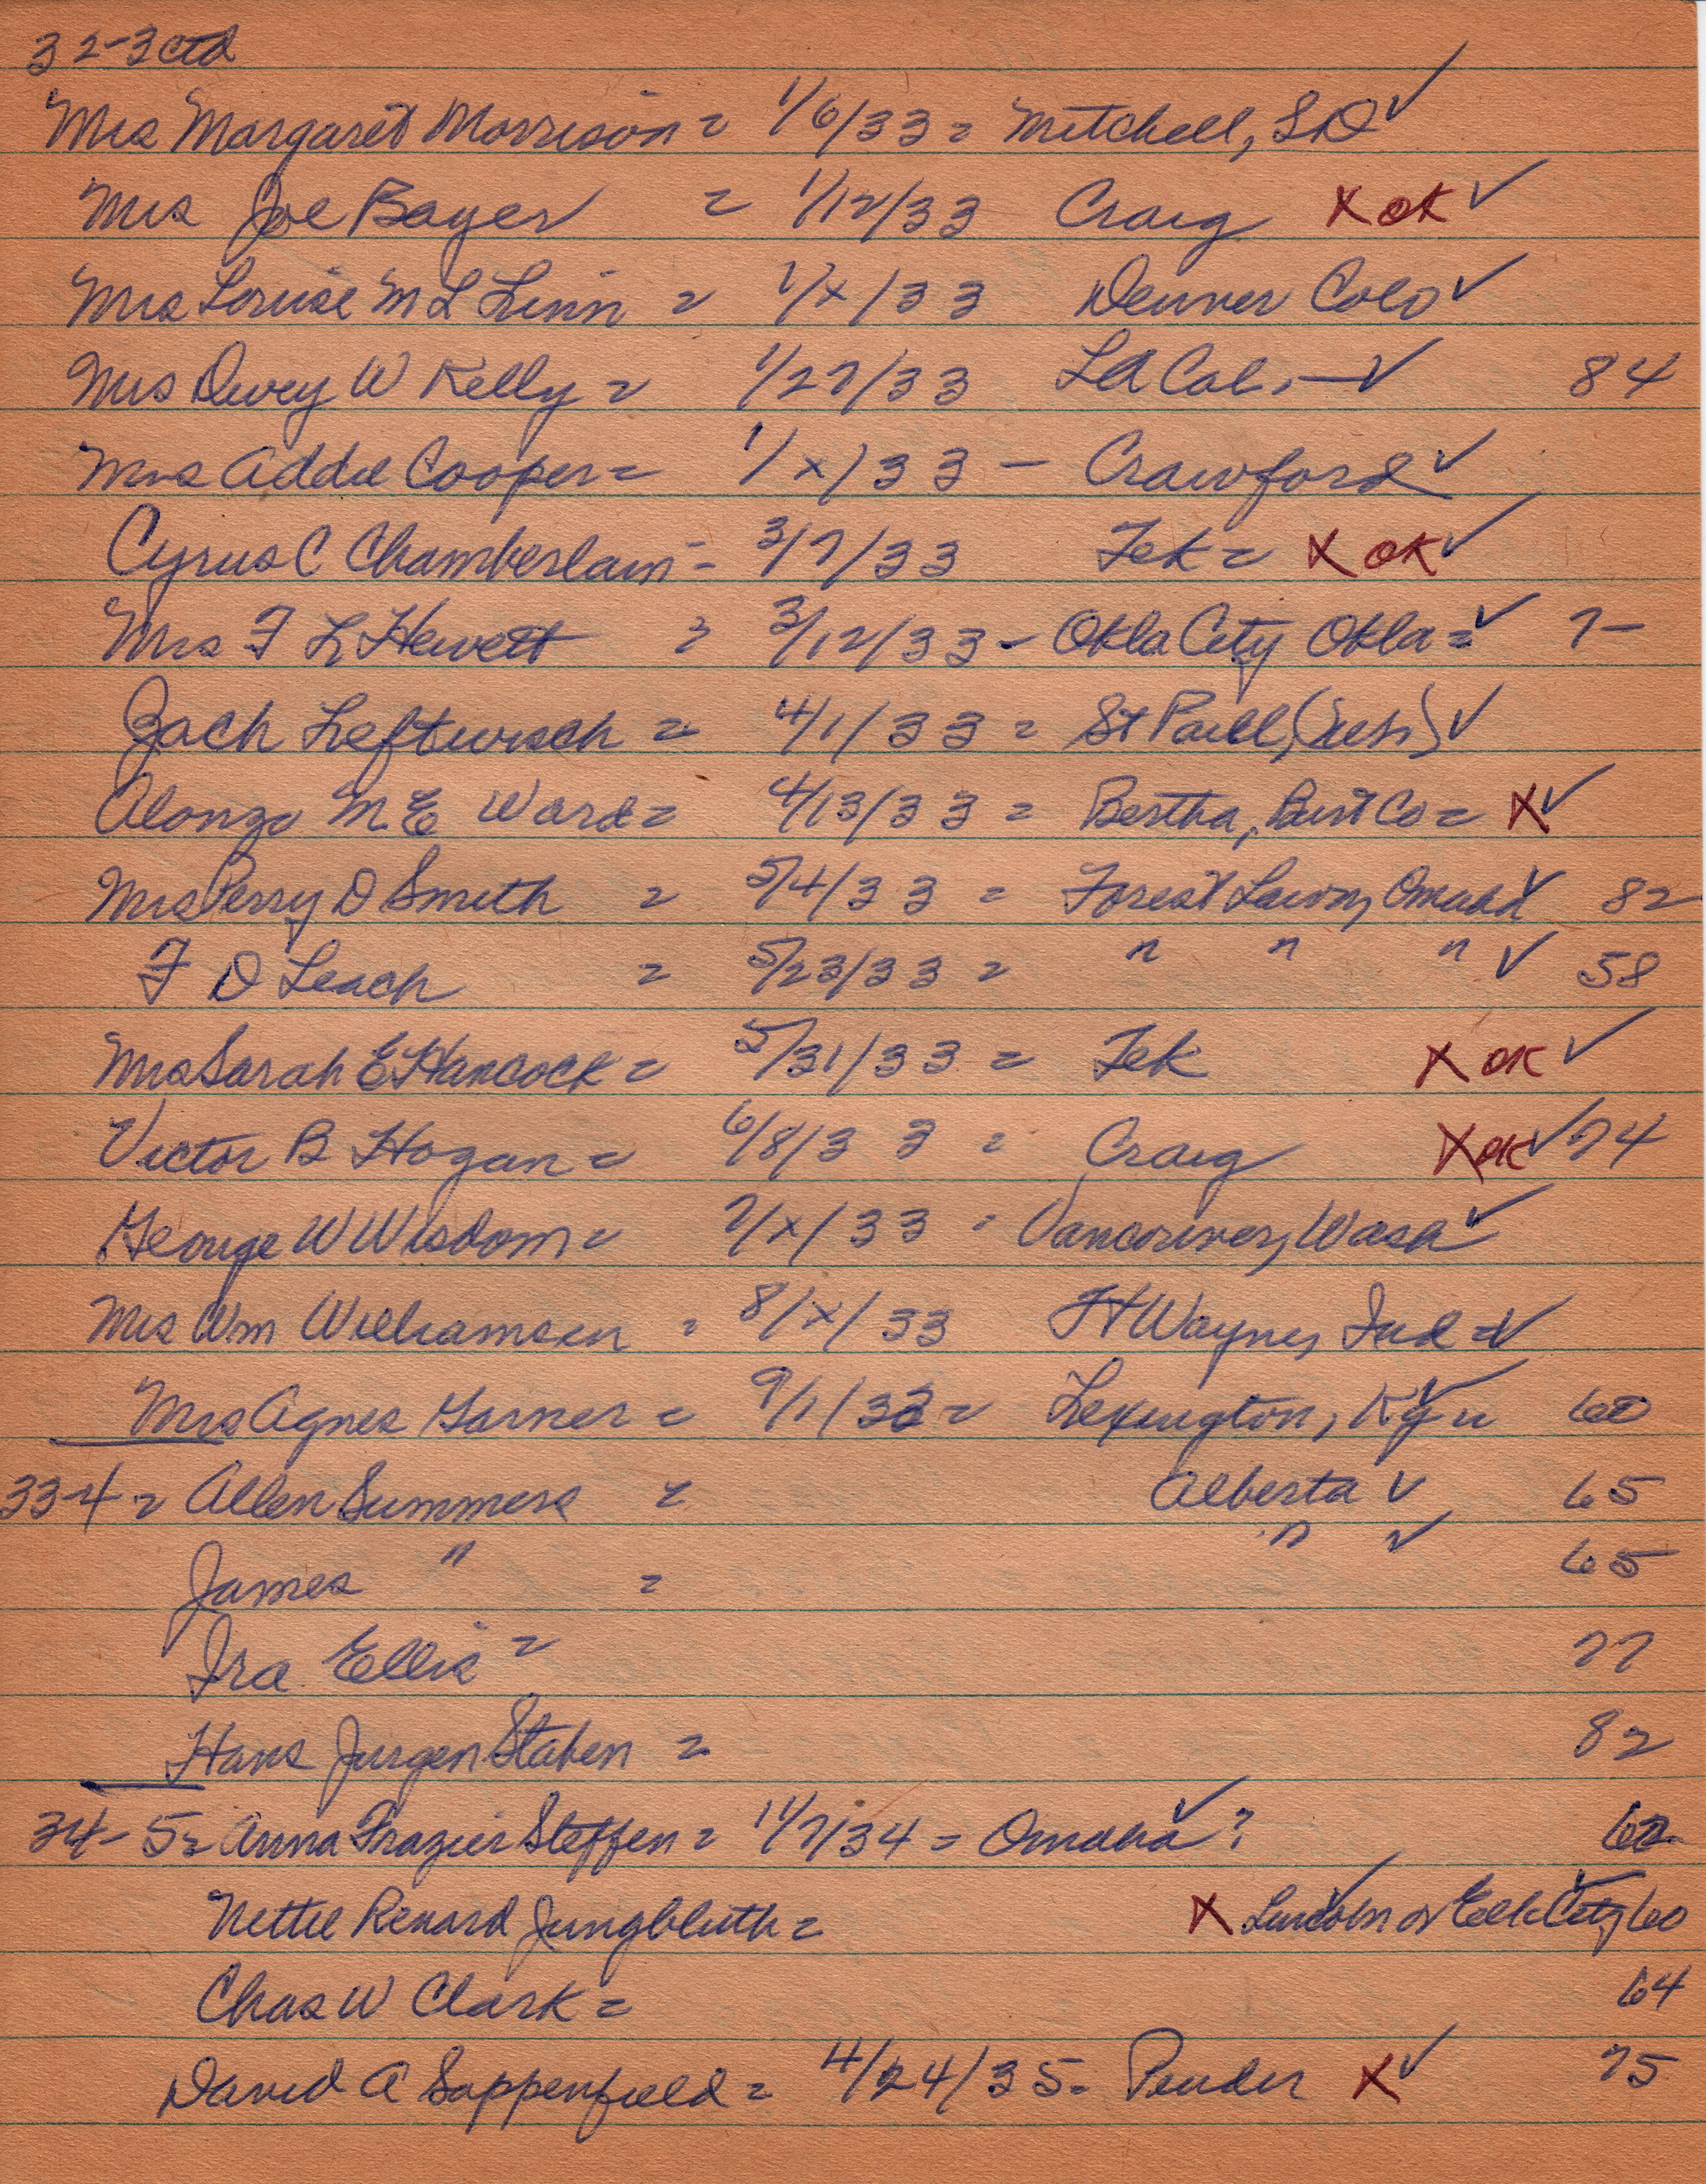 32-3 ctd
Mrs Margaret Morrison = 1/6/33 = Mitchell, SD ✓
Mrs Joe Bayer = 1/12/33 Craig X OK ✓
Mrs Louise M L Linn = 1/x/33 Denver Colo ✓
Mrs Dewey W Kelly = 1/27/33 LA Cal. — ✓ 84
Mrs Addie Cooper = 1/x/33 - Crawford ✓
Cyrus C Chamberlain = 3/7/33 Tek = X OK ✓
Mrs F L Hewett = 3/12/33 - Okla City Okla = ✓ 7-
Zach Leftwisch = 4/1/33 = St Paul, (Neb) ✓
Alonzo M E Ward = 4/13/33 = Bertha, Burt Co = X ✓
Mrs Perry D Smith = 5/4/33 = Forest Lawn, Omaha ✓ 82
F D Leach = 5/23/33 = " " " ✓ 58
Mrs Sarah E Hancock = 5/31/33 = Tek X OK ✓
Victor B Hogan = 6/8/33 = Craig X OK ✓ 74
George W Wisdom = 7/x/33 - Vancouver, Wash ✓
Mrs Wm Williamson = 8/x/33 Ft Wayne, Ind = ✓
Mrs Agnes Garner = 9/1/33 = Lexington, Ky = ✓ 60
33-4 = Allen Summers = Alberta ✓ 65
James " = " ✓ 65
Ira Ellis = 77
Hans Jurgen Staben = 82
34-5 = Anna Frazier Steffen = 11/7/34 = Omaha ✓ ? 62
Nettie Renard Jungbluth = X Lincoln ✓ or Elk City ✓ 60
Chas W Clark = 64
David A Sappenfield = 4/24/35 = Pender X ✓ 75